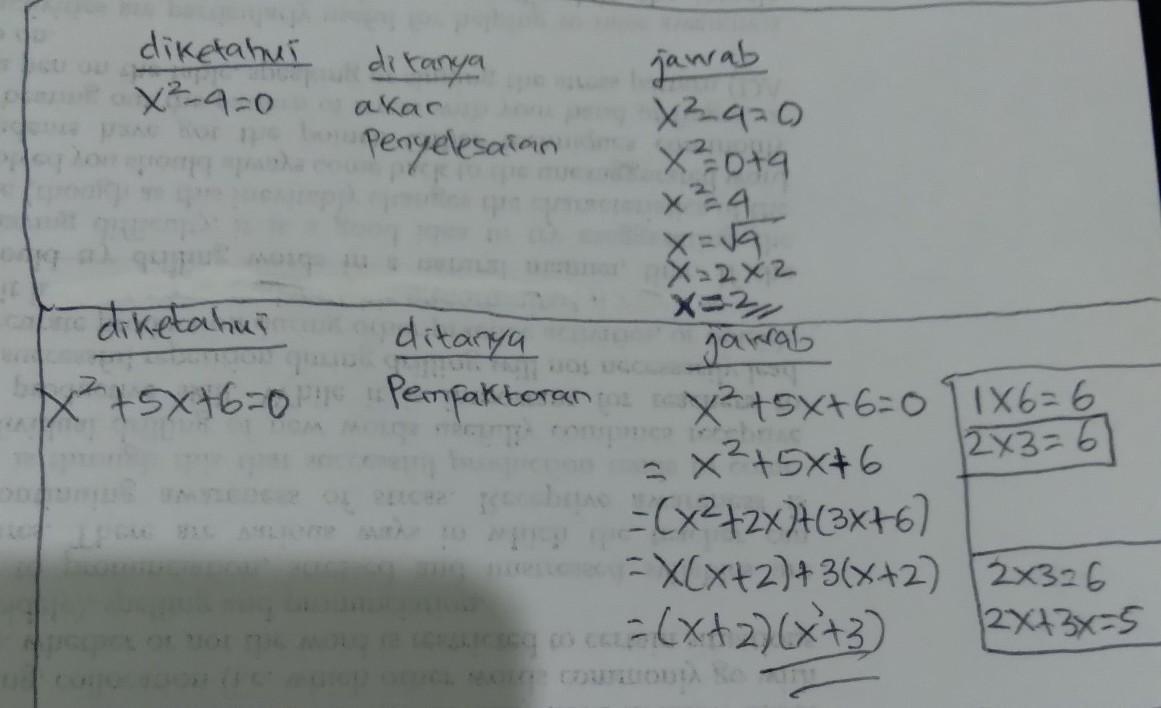 diketahui
x²-4=0
ditanya
akar
Penyelesaian
jawab
x²-4=0
x²=0+4
x²=4
x=√4
x=2x2
x=2
diketahui
x²+5x+6=0
ditanya
Pemfaktoran
jawab
x²+5x+6=0
= x²+5x+6
=(x²+2x)+(3x+6)
=x(x+2)+3(x+2)
=(x+2)(x+3)
1x6=6
2x3=6
2x3=6
2x+3x=5